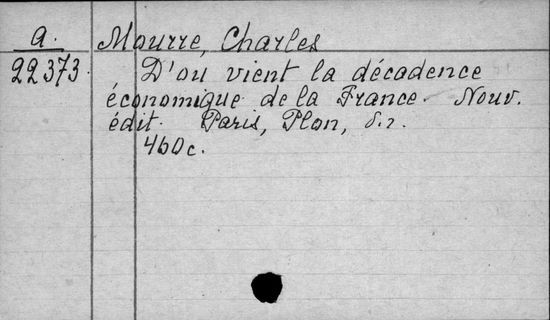 a. Mourre, Charles
22373. D'ou vient la décadence
économique de la France. Nouv.
édit. Paris, Plon,
460c.